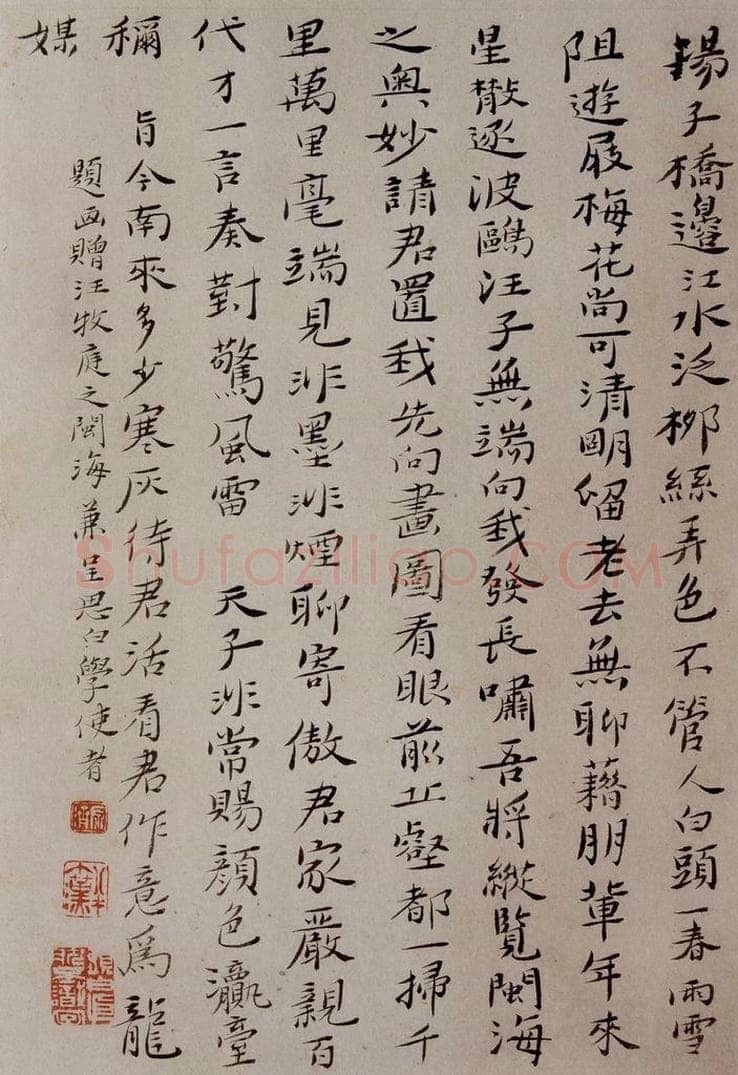 鍚子橋邊江水泛柳絲弄色不管人白頭一春雨雪
阻遊屐梅花尚可清明留老去無聊藉朋輩年來
星散逐波鷗汪子無端向我發長嘯吾將縱覽閩海
之奧妙請君置我先向畫圖看眼前丘壑都一掃千
里萬里毫端見非墨非煙聊寄傲君家嚴親百
代才一言奏對驚風雷 天子非常賜顏色瀛臺
稱旨今南來多少寒灰待君活看君作意爲龍
媒
題画贈汪牧庭之閩海兼呈思白學使者
Shufaziliao.COM